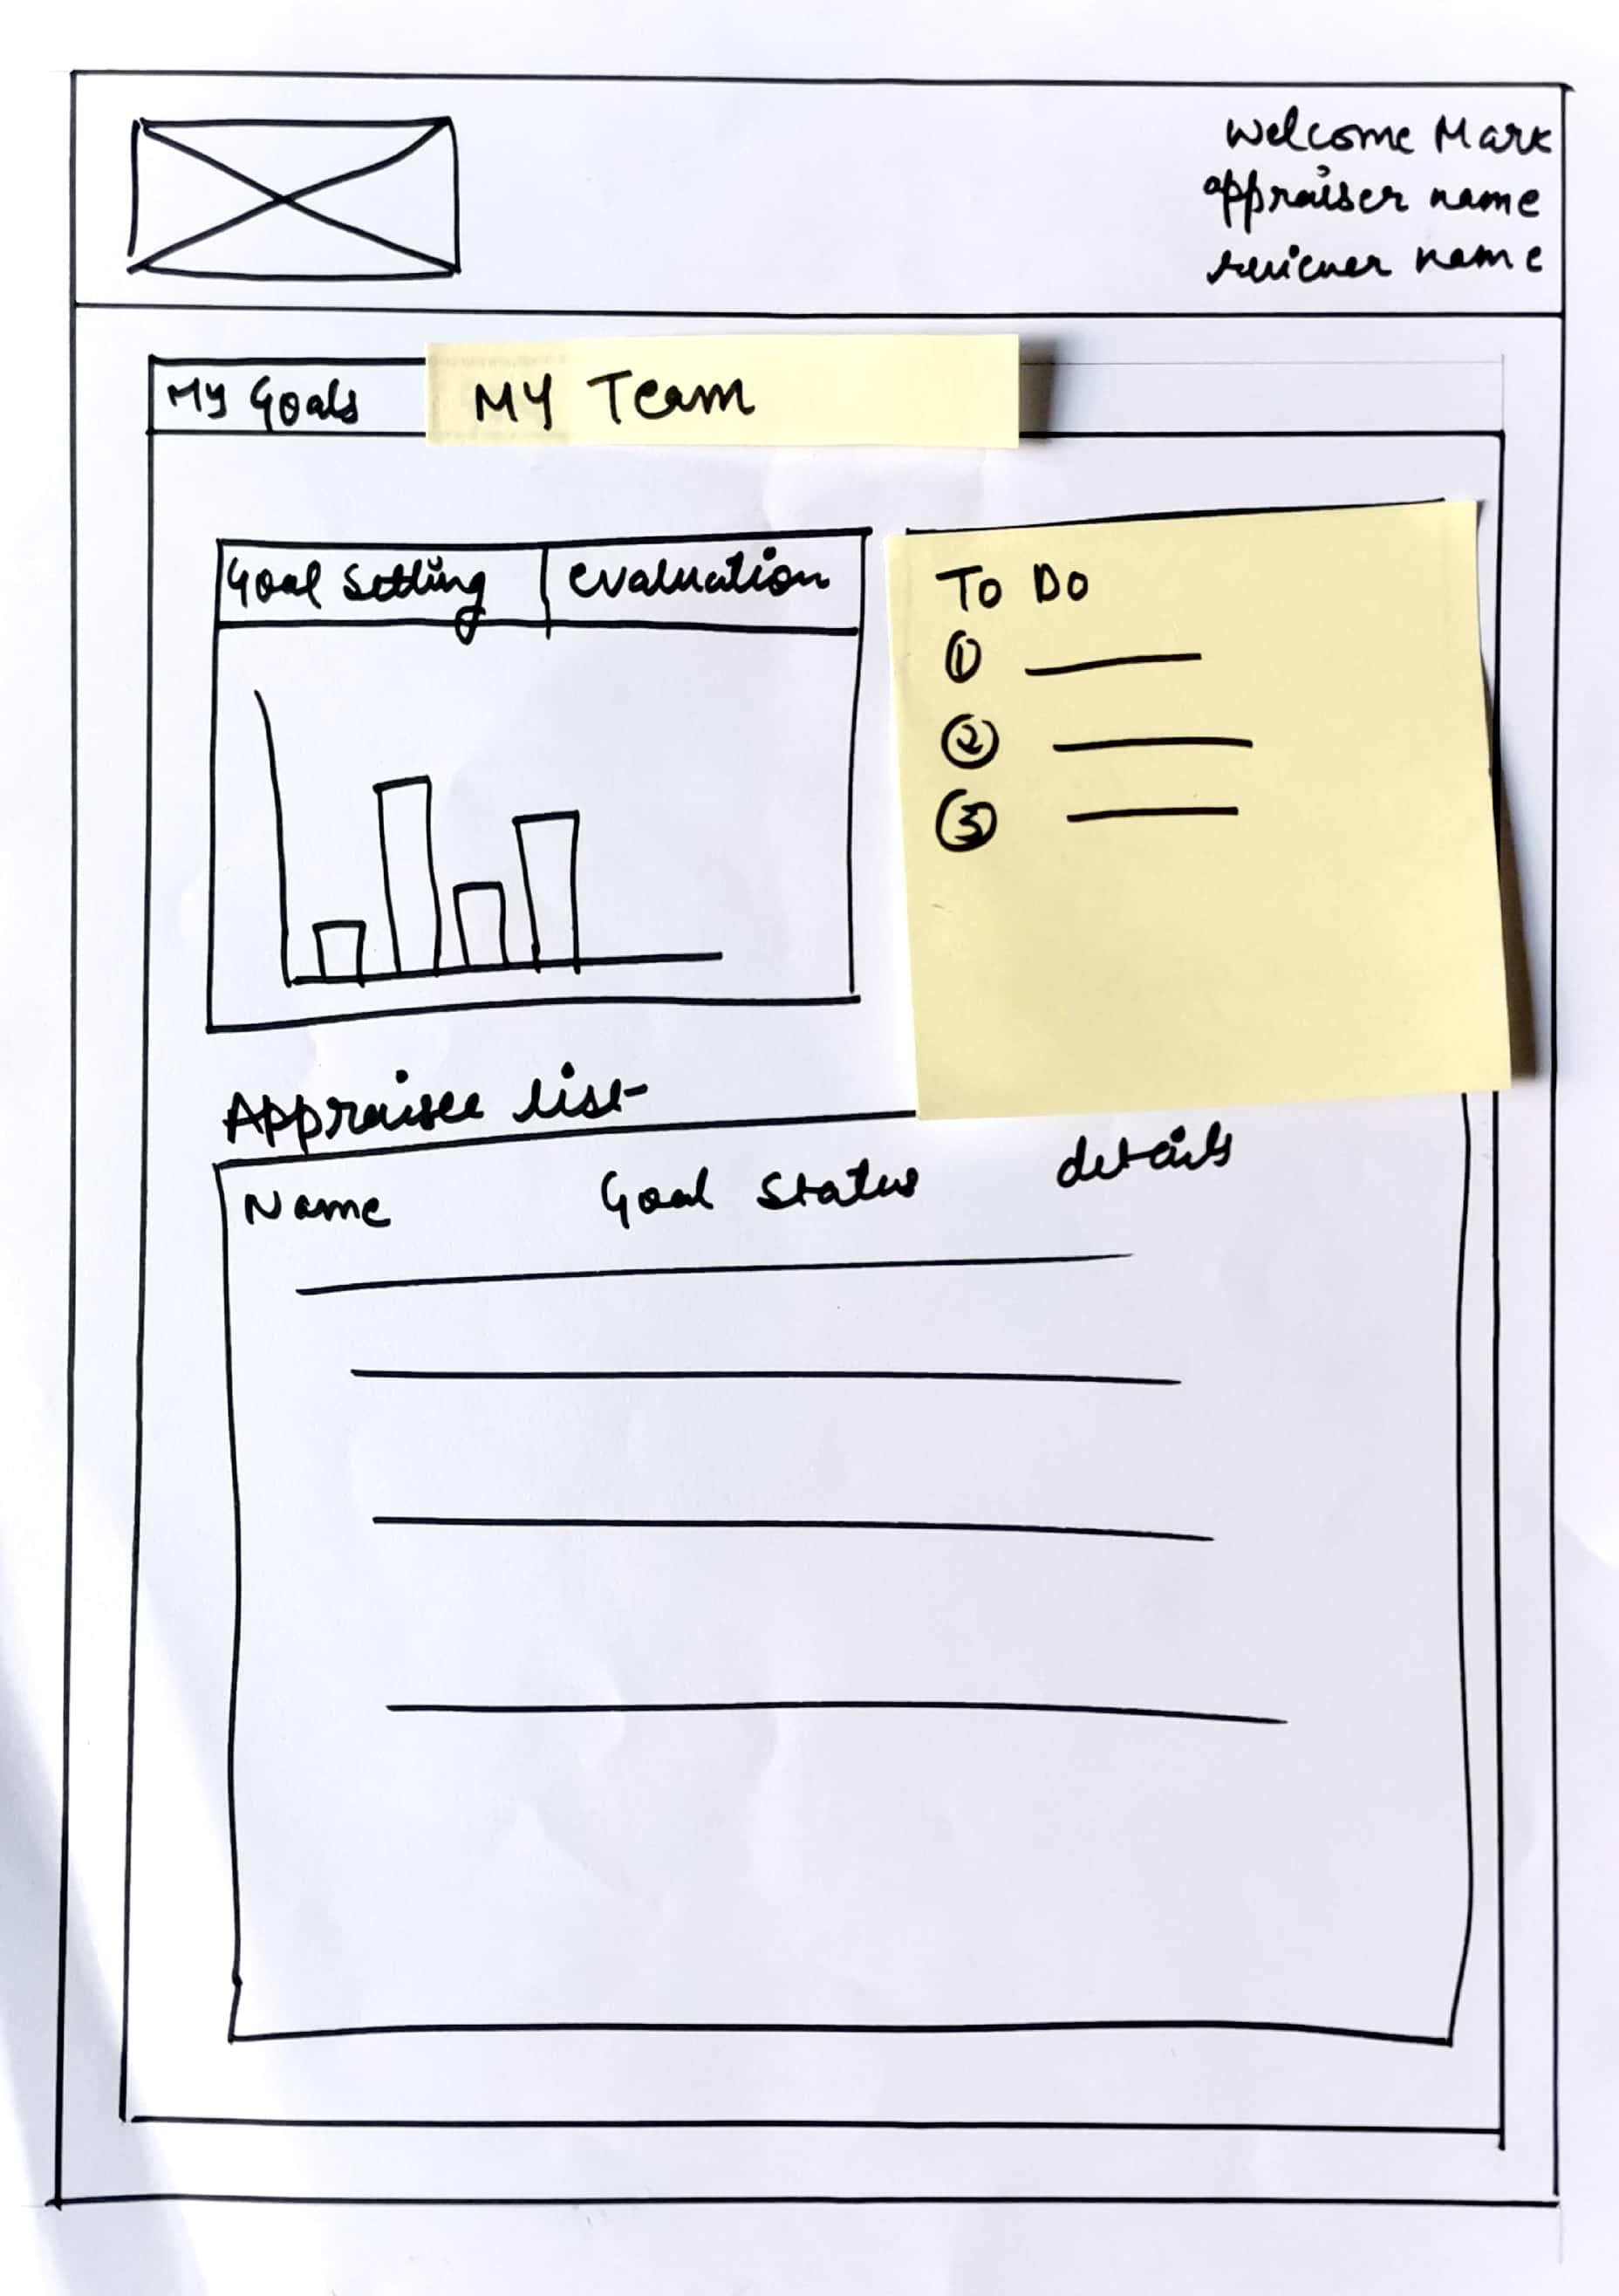 Welcome Mark
appraiser name
reviewer name
My Goals
MY Team
Goal Setting
evaluation
To Do
①
②
③
Appraisee list
Name Goal Status details